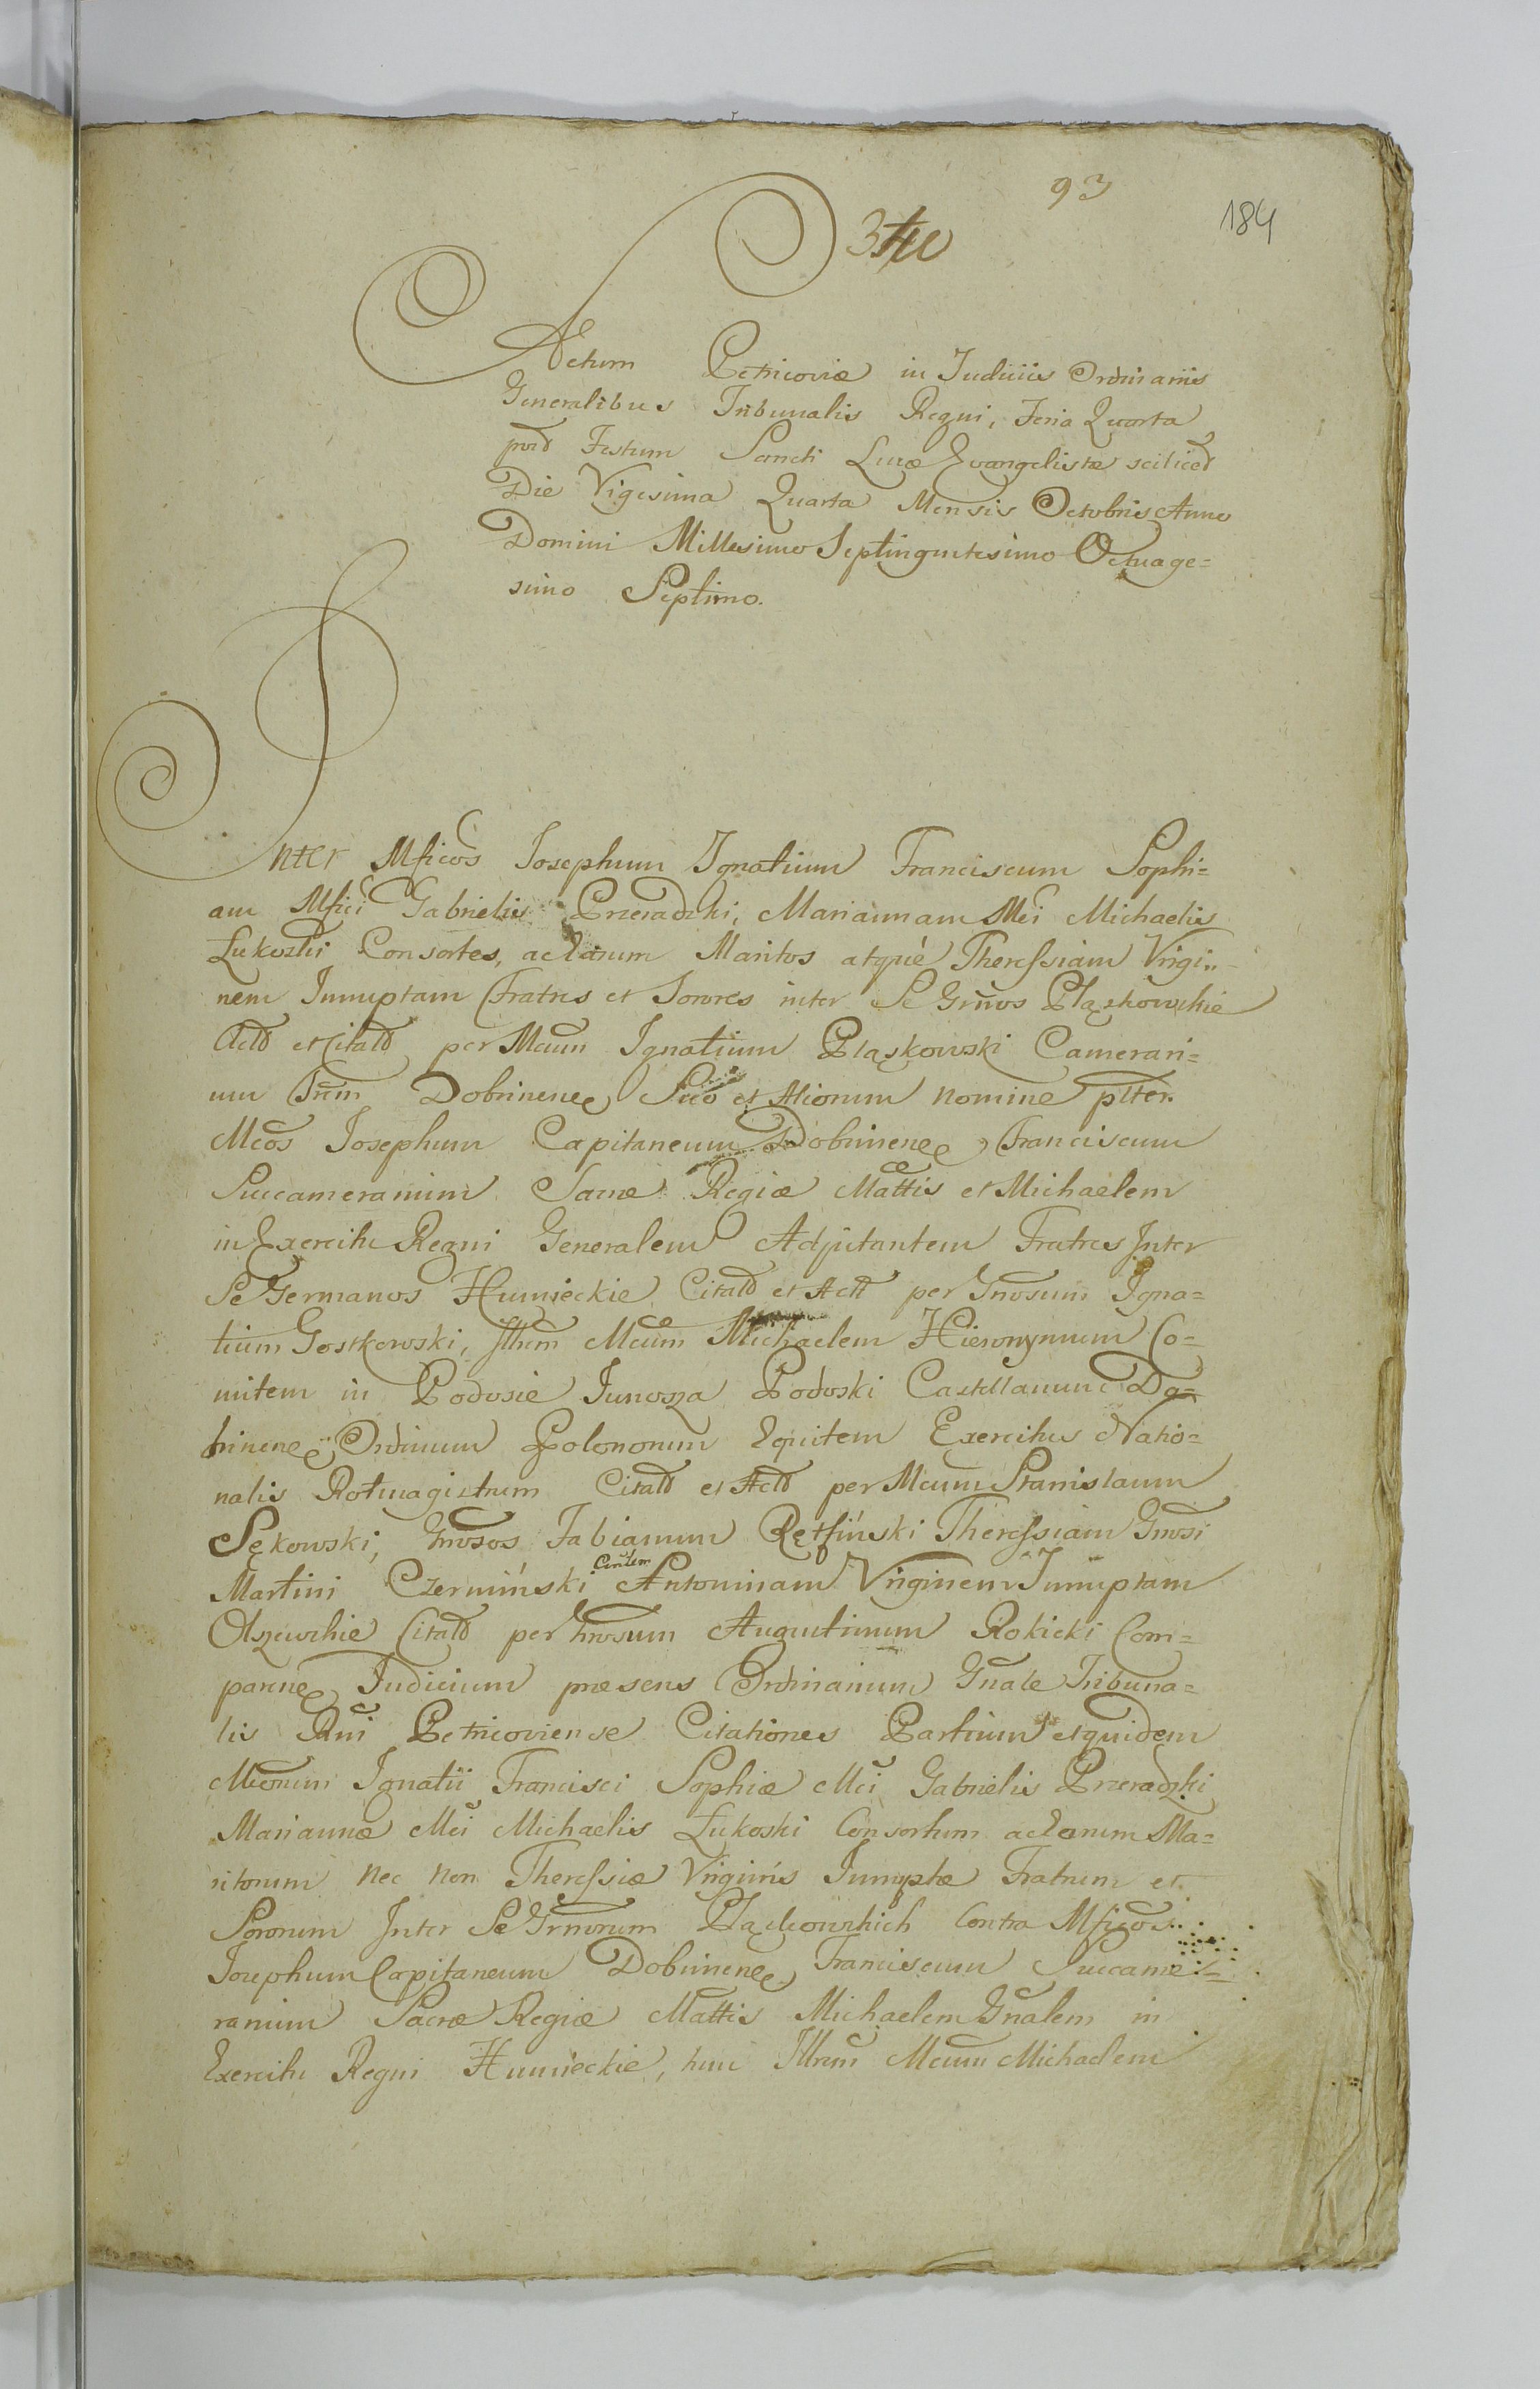 93
184
3tio
Actum Petricoviæ in Judiciis Ordinariis
Generalibus Tribunalis Regni, Feria Quarta
post Festum Sancti Lucæ Evangelistæ scilicet
Die Vigesima Quarta Mensis Octobris Anno
Domini Millesimo Septingentesimo Octuage=
simo Septimo.
Inter Mficos Josephum Ignatium Franciscum Sophi=
am Mfici Gabrielis Przeradzki, Mariannam Mci Michaelis
Łukoski Consortes, ac Earum Maritos atque Theressiam Virgi=
nem Innuptam Fratres et Sorores inter Se Grnos Płąskowskie
Act et Citat per Mcum Ignatium Płąskowski Camerari=
um Trem Dobrinene Suo et Aliorum nomine pltter.
Mcos Josephum Capitaneum Dobrinene, Franciscum
Succamerarium Sacræ Regiæ Mattis et Michaelem
in Exercitu Regni Generalem Adjutantem Fratres Inter
Se Germanos Humieckie Citat et Act per Gnosum Igna=
tium Gostkowski, Illrem Mcum Michaelem Hieronymum Co=
mitem in Podosie Junosza Podoski Castellanum Do=
brinene, Ordinum Polonorum Equitem Exercitus Natio=
nalis Rotmagistrum Citat et Act per Mcum Stanislaum
Sękowski, Gnosos Fabianum Rętfiński Theressiam Gnosi
Martini Czermiński Contem Antoninam Virginem Innuptam
Olszewskie Citat per Gnosum Augustinum Rokicki Com=
parene, Judicium præsens Ordinarium Gnale Tribuna=
lis Rni Petricoviense Citationes Partium et quidem
Mcorum Ignatii Francisci Sophiæ Mci Gabrielis Przeradzki
Mariannæ Mci Michaelis Łukoski Consortum ac Earum Ma=
ritorum nec non Theressiæ Virginis Innuptæ Fratrum et
Sororum Inter Se Grnorum Płąskowskich Contra Mficos
Josephum Capitaneum Dobrinene, Franciscum Succame=
rarium Sacræ Regiæ Mattis Michaelem Gnalem in
Exercitu Regni Humieckie, tum Illrem Mcum Michaelem